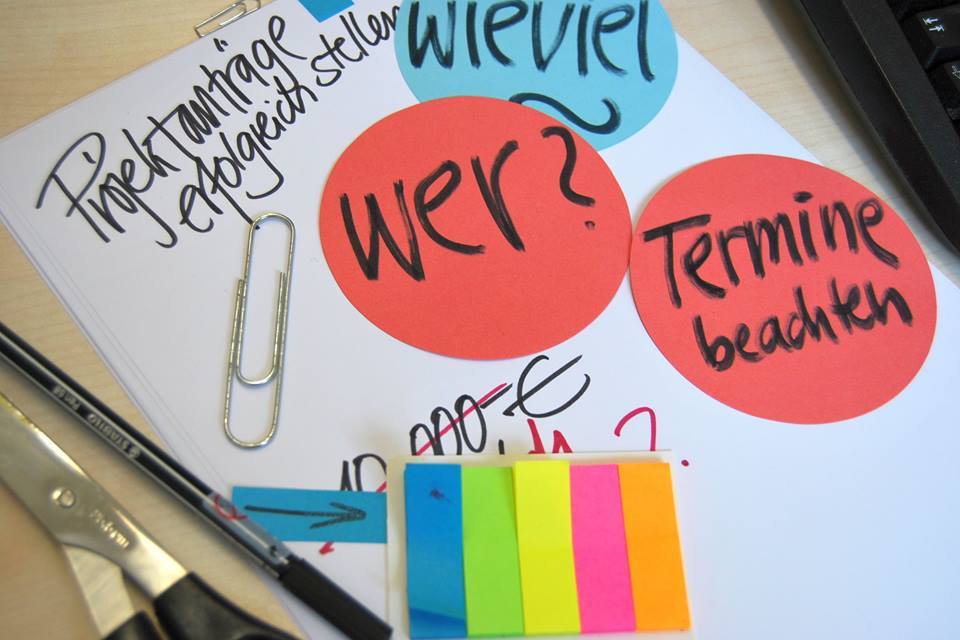 Projektanträge
erfolgreich stellen
wieviel
wer?
Termine
beachten
10.000-€
?
STABILO